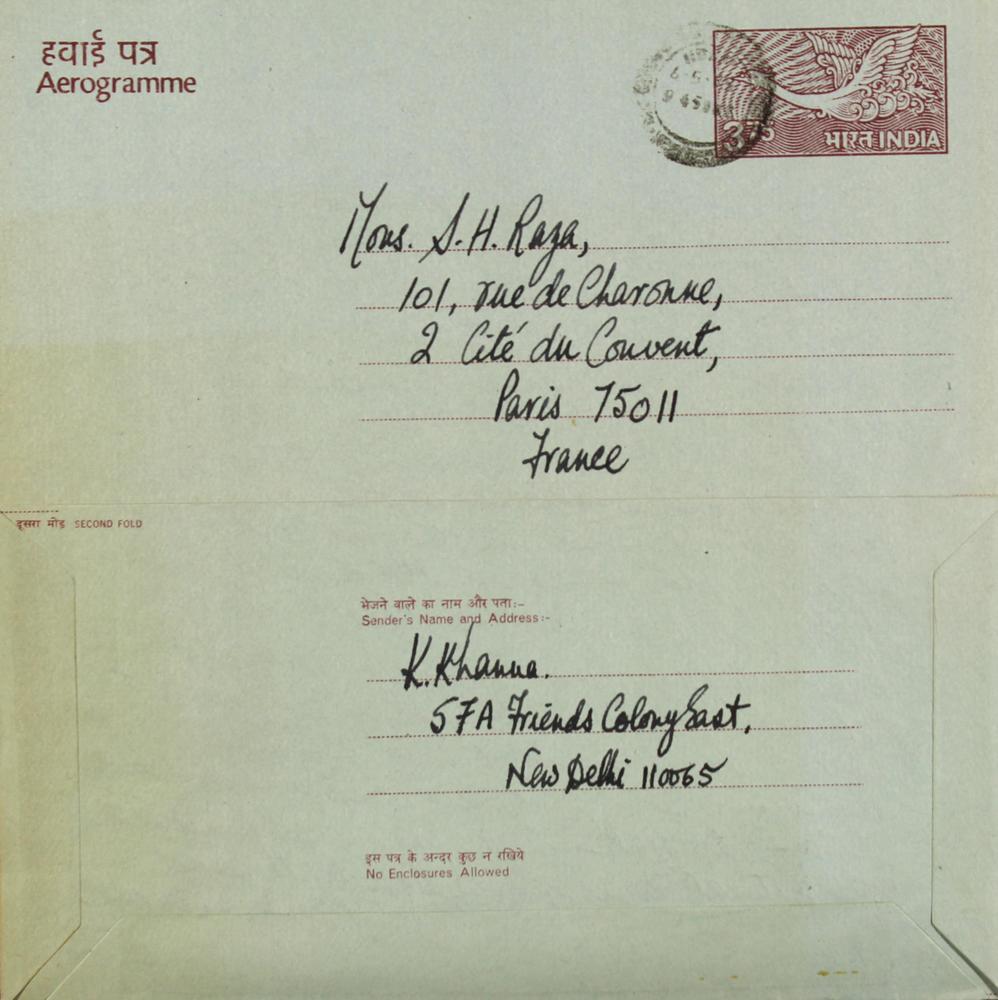 हवाई पत्र
Aerogramme
भारत INDIA
Mons. S. H. Raza,
101, rue de Charonne,
2 Cité du Couvent,
Paris 75011
France
दूसरा मोड़ SECOND FOLD
भेजने वाले का नाम और पता:-
Sender's Name and Address:-
K. Khanna.
57A Friends Colony East,
New Delhi 110065
इस पत्र के अन्दर कुछ न रखिये
No Enclosures Allowed